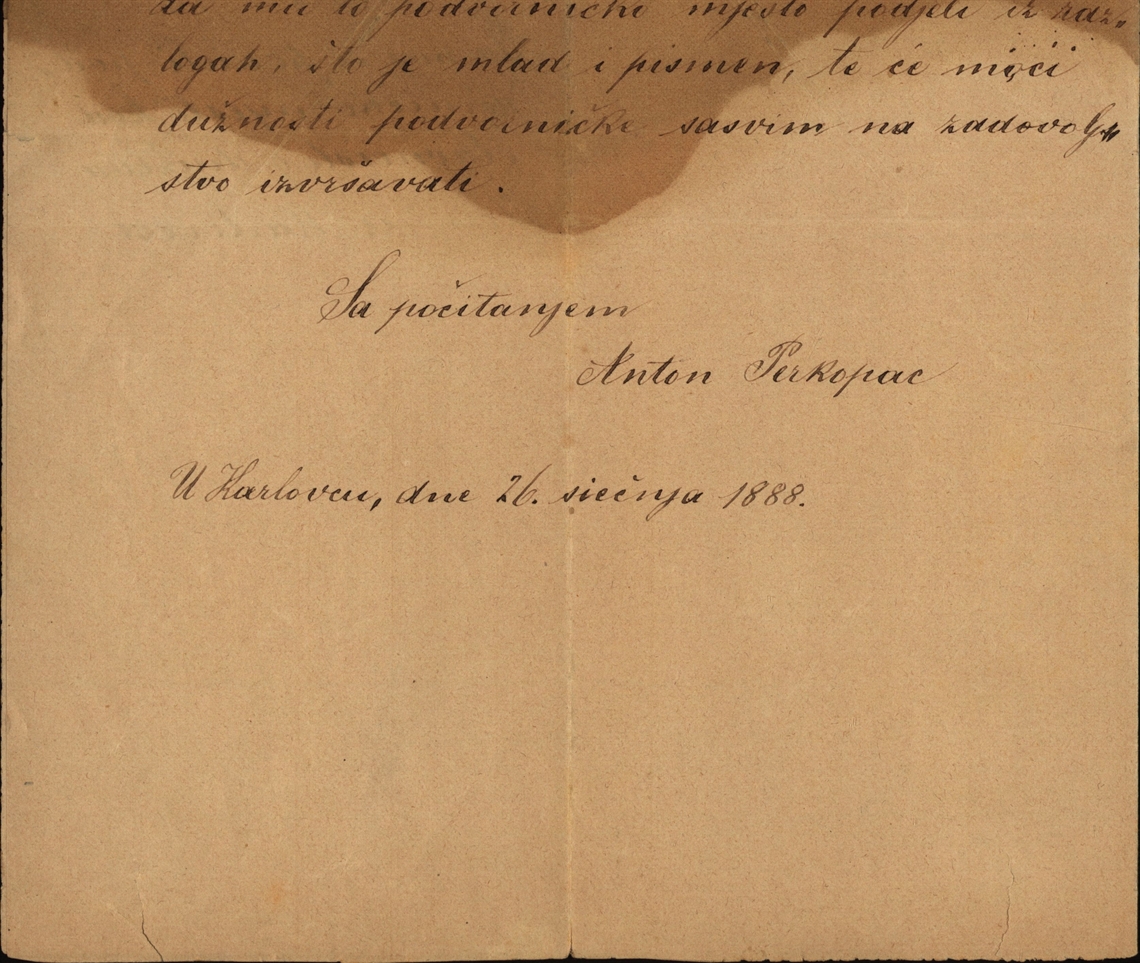 da mu to podvorničko mjesto podjeli iz raz„
logah, što je mlad i pismen, te će moći
dužnosti podvorničke sasvim na zadovolj„
stvo izvršavati.
Sa počitanjem
Anton Perkopac
U Karlovcu, dne 26. siečnja 1888.